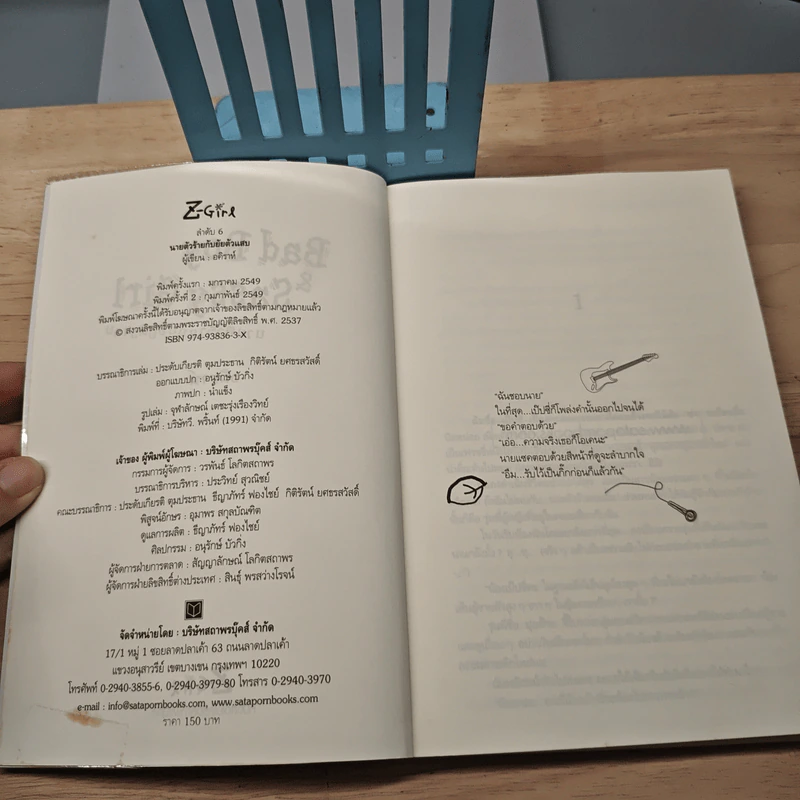 Z-Girl
ลำดับ 6
นายตัวร้ายกับยัยตัวแสบ
ผู้เขียน : อคิราห์
พิมพ์ครั้งแรก : มกราคม 2549
พิมพ์ครั้งที่ 2 : กุมภาพันธ์ 2549
พิมพ์โฆษณาครั้งนี้ได้รับอนุญาตจากเจ้าของลิขสิทธิ์ตามกฎหมายแล้ว
© สงวนลิขสิทธิ์ตามพระราชบัญญัติลิขสิทธิ์ พ.ศ. 2537
ISBN 974-93836-3-X
บรรณาธิการเล่ม : ประดับเกียรติ ตุมประธาน กิติรัตน์ ยศธรสวัสดิ์
ออกแบบปก : อนุรักษ์ บัวกิ่ง
ภาพปก : น้ำแข็ง
รูปเล่ม : จุฬาลักษณ์ เตชะรุ่งเรืองวิทย์
พิมพ์ที่ : บริษัทวี. พริ้นท์ (1991) จำกัด
เจ้าของ ผู้พิมพ์ผู้โฆษณา : บริษัทสถาพรบุ๊คส์ จำกัด
กรรมการผู้จัดการ : วรพันธ์ โลกิตสถาพร
บรรณาธิการบริหาร : ประวิทย์ สุวณิชย์
คณะบรรณาธิการ : ประดับเกียรติ ตุมประธาน ชีญาภัทร์ ฟองไชย์ กิติรัตน์ ยศธรสวัสดิ์
พิสูจน์อักษร : อุมาพร สกุลบัณฑิต
ดูแลการผลิต : ชีญาภัทร์ ฟองไชย์
ศิลปกรรม : อนุรักษ์ บัวกิ่ง
ผู้จัดการฝ่ายการตลาด : สัญญาลักษณ์ โลกิตสถาพร
ผู้จัดการฝ่ายลิขสิทธิ์ต่างประเทศ : สินธุ์ พรสว่างโรจน์
จัดจำหน่ายโดย : บริษัทสถาพรบุ๊คส์ จำกัด
17/1 หมู่ 1 ซอยลาดปลาเค้า 63 ถนนลาดปลาเค้า
แขวงอนุสาวรีย์ เขตบางเขน กรุงเทพฯ 10220
โทรศัพท์ 0-2940-3855-6, 0-2940-3979-80 โทรสาร 0-2940-3970
e-mail : info@satapornbooks.com, www.satapornbooks.com
ราคา 150 บาท
1
"ฉันชอบนาย"
ในที่สุด...เป็บซี่ก็โพล่งคำนั้นออกไปจนได้
"ขอคำตอบด้วย"
"เอ่อ...ความจริงเธอก็โอเคนะ"
นายแซคตอบด้วยสีหน้าที่ดูจะลำบากใจ
"อืม...รับไว้เป็นกิ๊กก่อนก็แล้วกัน"